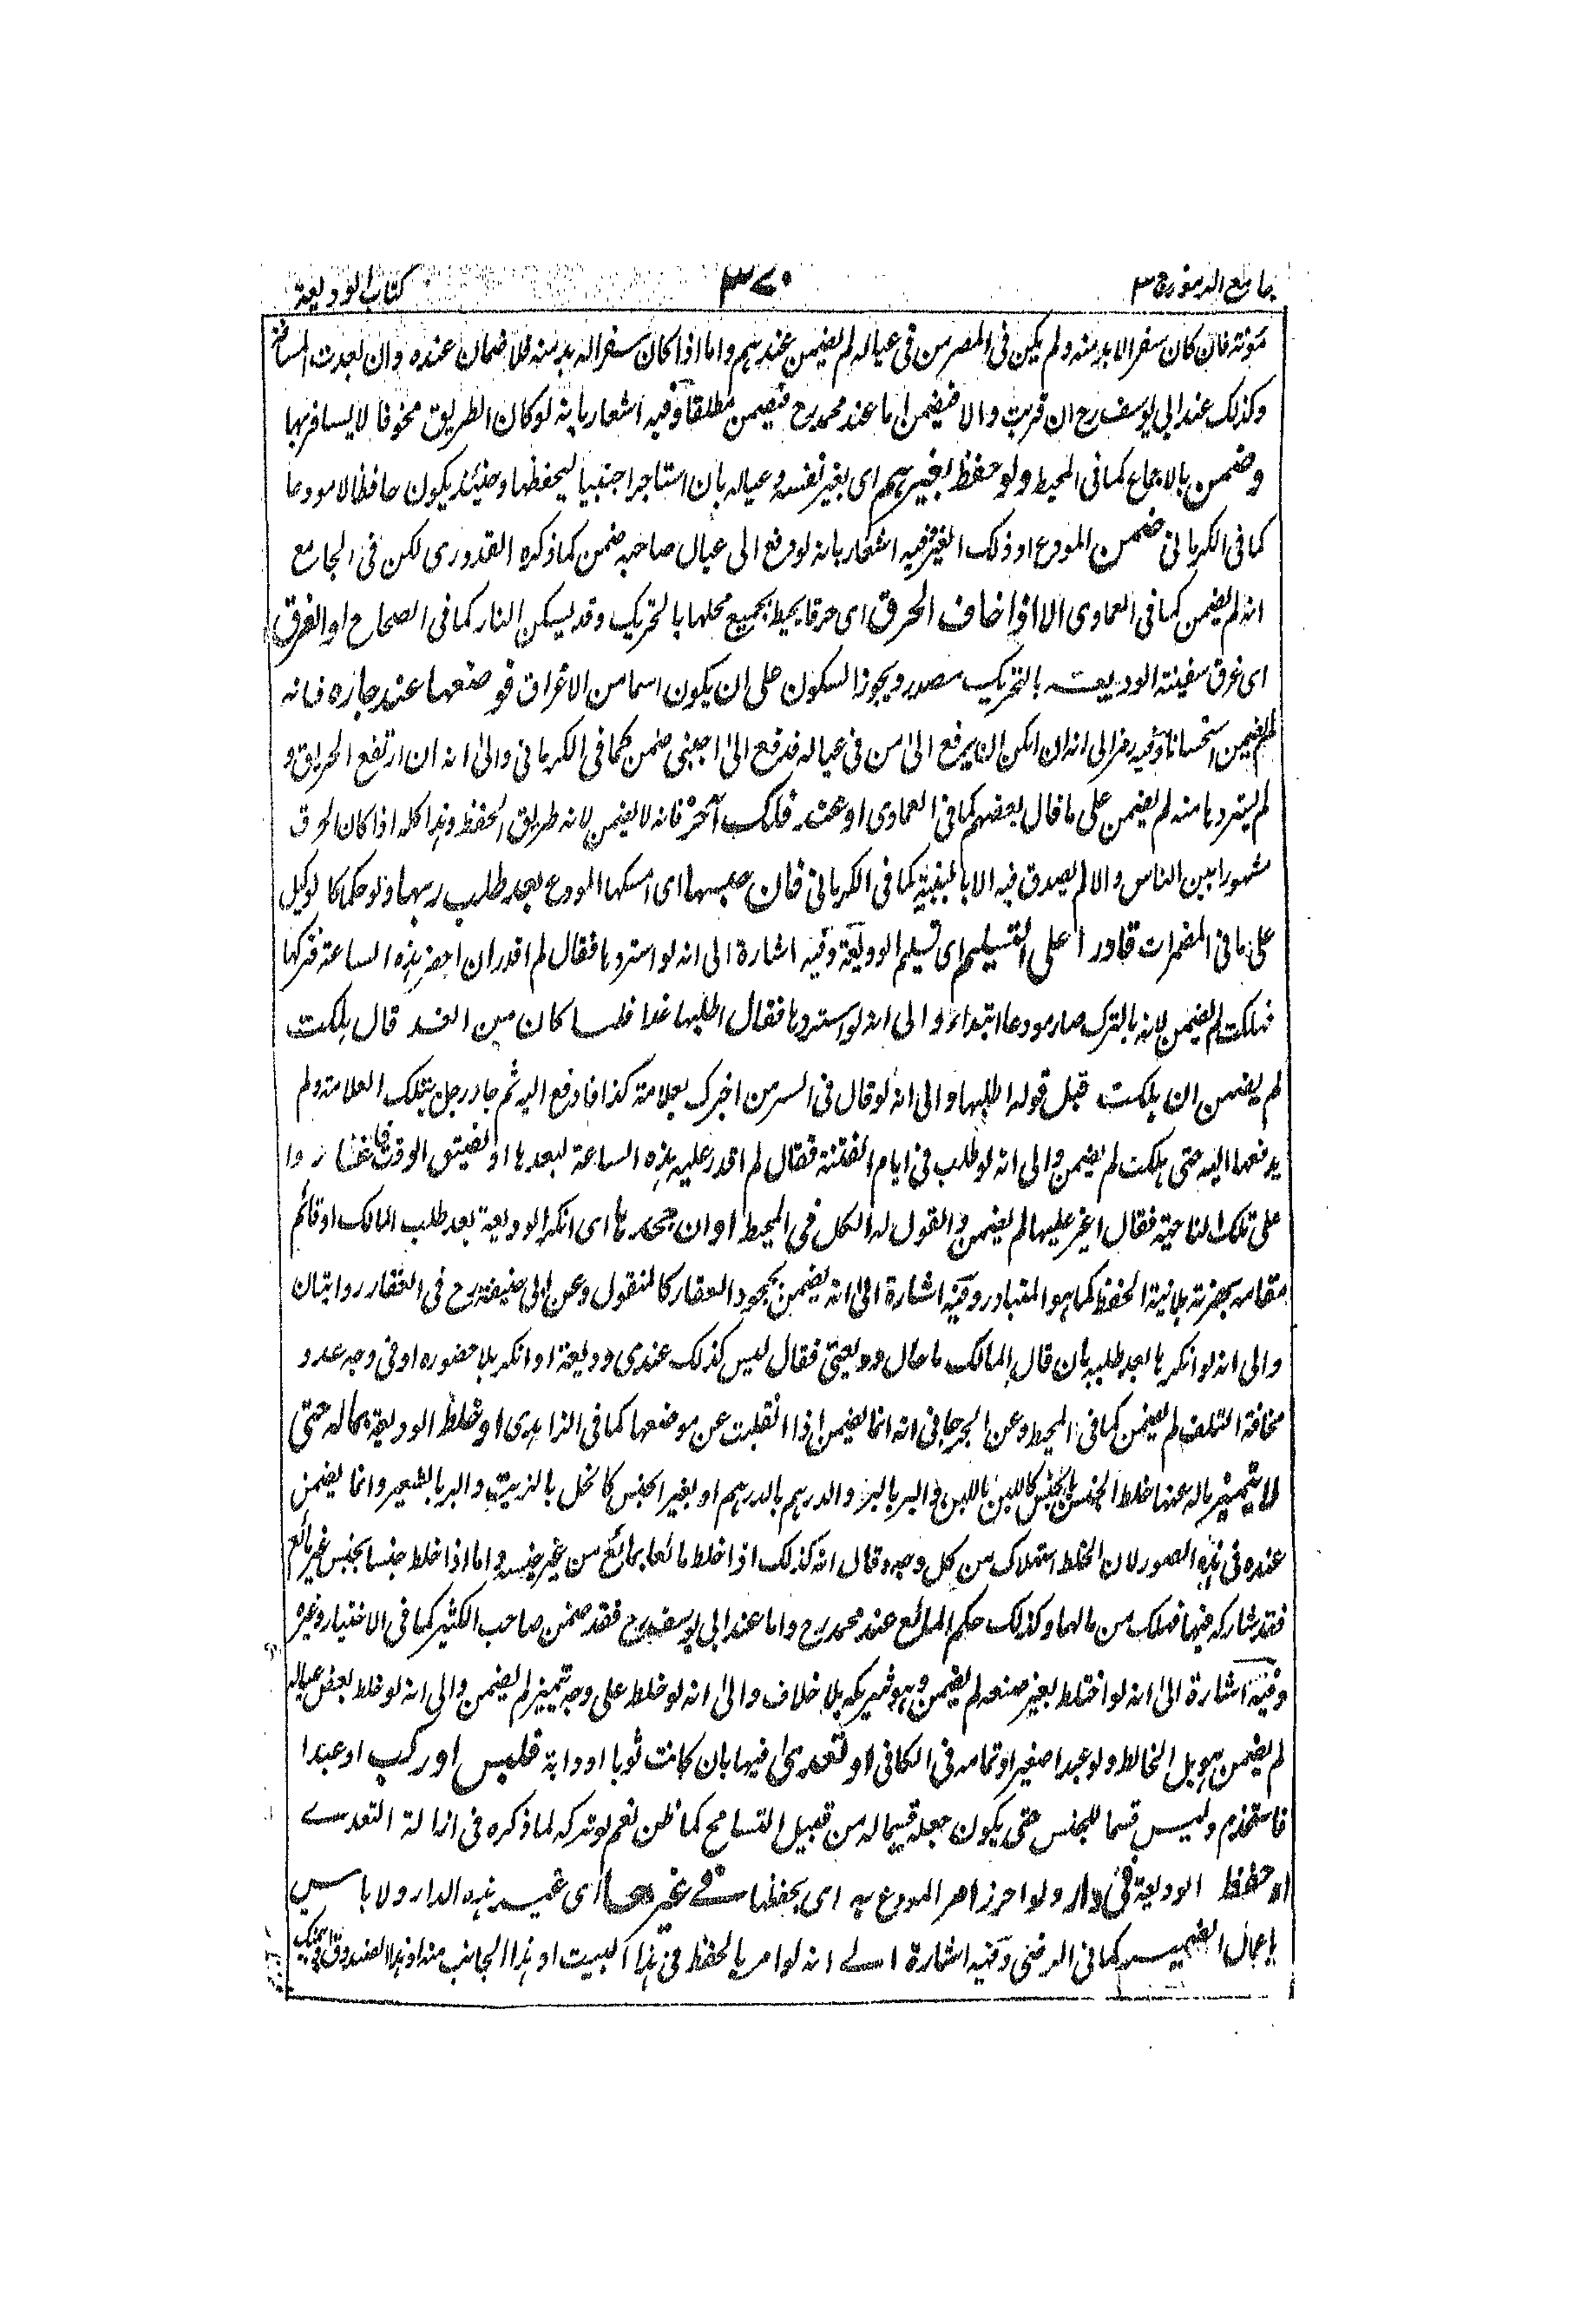 جامع الرموز ج ٣
٣٧٠
كتاب الوديعة
مؤنته فان كان سفرا لابد منه ولم يكن فى المصر من فى عياله لم يضمن عندهم واما اذا كان سفرا له بد منه فلا ضمان عنده وان بعدت المسافة
وكذلك عند ابى يوسف رح ان قربت والا فيضمن اما عند محمد رح فيضمن مطلقا وفيه اشعار بانه لو كان الطريق مخوفا لا يسافر بها
وضمن بالاجماع كما فى المحيط ولو حفظ بغيرهم اى بغير نفسه وعياله بان استاجر اجنبيا ليحفظها وحينئذ يكون حافظا لا مودعا
كما فى الكرمانى ضمن المودع او ذلك الغير وفيه اشعار بانه لو دفع الى عيال صاحبه ضمن كما ذكره القدورى لكن فى الجامع
انه لم يضمن كما فى العمادى الا اذا خاف الحرق اى حرقا يحيط بجميع محلها بالتحريك وقد يسكن النار كما فى الصحاح او الغرق
اى غرق سفينة الوديعة بالتحريك مصدر ويجوز السكون على ان يكون اسما من الاغراق فوضعها عند جاره فانه
لم يضمن استحسانا وفيه رمز الى انه ان امكن ان يدفع الى من فى عياله فدفع الى اجنبى ضمن كما فى الكرمانى والى انه ان ارتفع الحريق و
لم يستردها منه لم يضمن على ما قال بعضهم كما فى العمادى او عند فلك آخر فانه لا يضمن لانه طريق الحفظ وهذا كله اذا كان الحرق
مشهورا بين الناس والا لم يصدق فيه الا بالبينة كما فى الكرمانى فان حبسها اى امسكها المودع بعد طلب ربها ولو حكما كالوكيل
على ما فى المضمرات قادرا على التسليم اى تسليم الوديعة وفيه اشارة الى انه لو استردها فقال لم اقدر ان احضر هذه الساعة فتركها
فهلكت لم يضمن لانه بالترك صار مودعا ابتداء والى انه لو استردها فقال اطلبها غدا فلما كان من الغد قال هلكت
لم يضمن ان هلكت قبل قوله اطلبها والى انه لو قال فى السر من اخبرك بعلامة كذا فادفع اليه ثم جاء رجل بتلك العلامة ولم
يدفعها اليه حتى هلكت لم يضمن والى انه لو طلب فى ايام الفتنة فقال لم اقدر عليه هذه الساعة لبعدها او لضيق الوقت فاغاروا
على تلك الناحية فقال اغير عليها لم يضمن والقول له الكل فى المحيط او ان جحدها اى انكر الوديعة بعد طلب المالك او قائم
مقامه بحضرته بلا نية الحفظ كما هو المتبادر وفيه اشارة الى انه يضمن بجحود العقار كالمنقول وعن ابى حنيفة رح فى العقار روايتان
والى انه لو انكرها بعد طلبه بان قال المالك ما حال وديعتى فقال ليس كذلك عندى وديعة او انكر بلا حضوره او فى وجه عدو
مخافة التلف لم يضمن كما فى المحيط وعن الجرجانى انه انما يضمن اذا انقلبت عن موضعها كما فى الزاهدى او خلط الوديعة بماله حتى
لا يتميز ماله عنها خلط الجنس بالجنس كاللبن باللبن والبر بالبر والدرهم بالدرهم او بغير الجنس كالخل بالزيت والبر بالشعير وانما يضمن
عنده فى هذه الصور لان الخلط استهلاك من كل وجه وقال انه كذلك اذا خلط مائعا بمائع من غير جنسه واما اذا خلط جنسا بجنس غير مائع
فقد شاركه فيها فهلك من مالهما وكذلك حكم المائع عند محمد رح واما عند ابى يوسف رح فقد ضمن صاحب الكثير كما فى الاختيار وغيره
وفيه اشارة الى انه لو اختلط بغير صنعه لم يضمن وهو شريكه بلا خلاف والى انه لو خلط على وجه تميز لم يضمن والى انه لو خلط بعض عياله
لم يضمن هو بل الخالط ولو عبدا صغيرا وتمامه فى الكافى او تعدى فيها بان كانت ثوبا او دابة فلبس او ركب او عبدا
فاستخدم وليس قسما للجنس حتى يكون جعله قسيما له من قبيل التسامح كما ظن نعم لو تركه لما ذكره فى ازالة التعدى
او حفظ الوديعة فى دار ولو احرزا مر المودع به اى بحفظها فى غيرها اى غير هذه الدار ولا باس
باعمال الضمير كما فى الرضى وفيه اشارة الى انه لو امر بالحفظ فى هذا البيت او هذا الجانب منه او هذا الصندوق